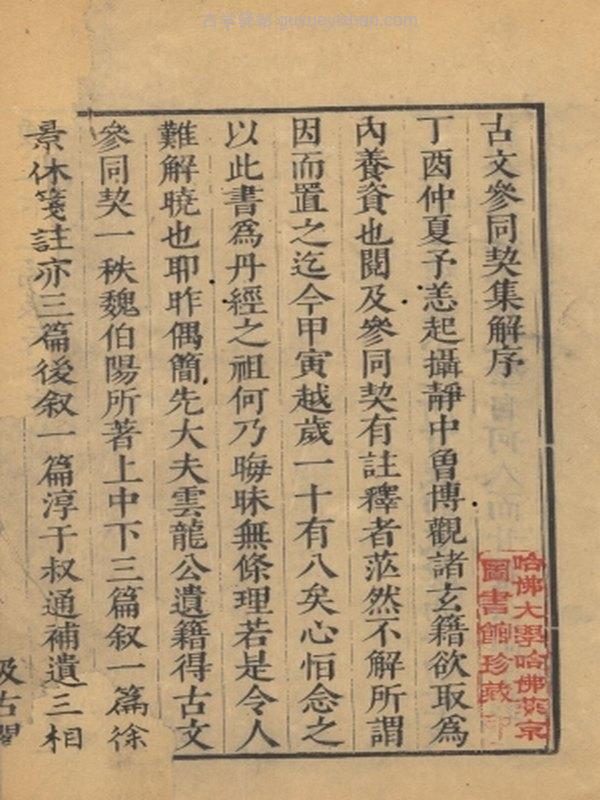 古文參同契集解序
丁酉仲夏予恙起攝靜中曾博觀諸玄籍欲取為
內養資也閱及參同契有註釋者茫然不解所謂
因而置之迄今甲寅越歲一十有八矣心怕念之
以此書為丹經之祖何乃晦昧無條理若是令人
難解曉也耶昨偶簡先大夫雲龍公遺籍得古文
參同契一秩魏伯陽所著上中下三篇叙一篇徐
景休箋註亦三篇後叙一篇淳于叔通補遺三相
汲古閣
哈佛大學哈佛燕京
圖書館珍藏印
guxueyishan.com